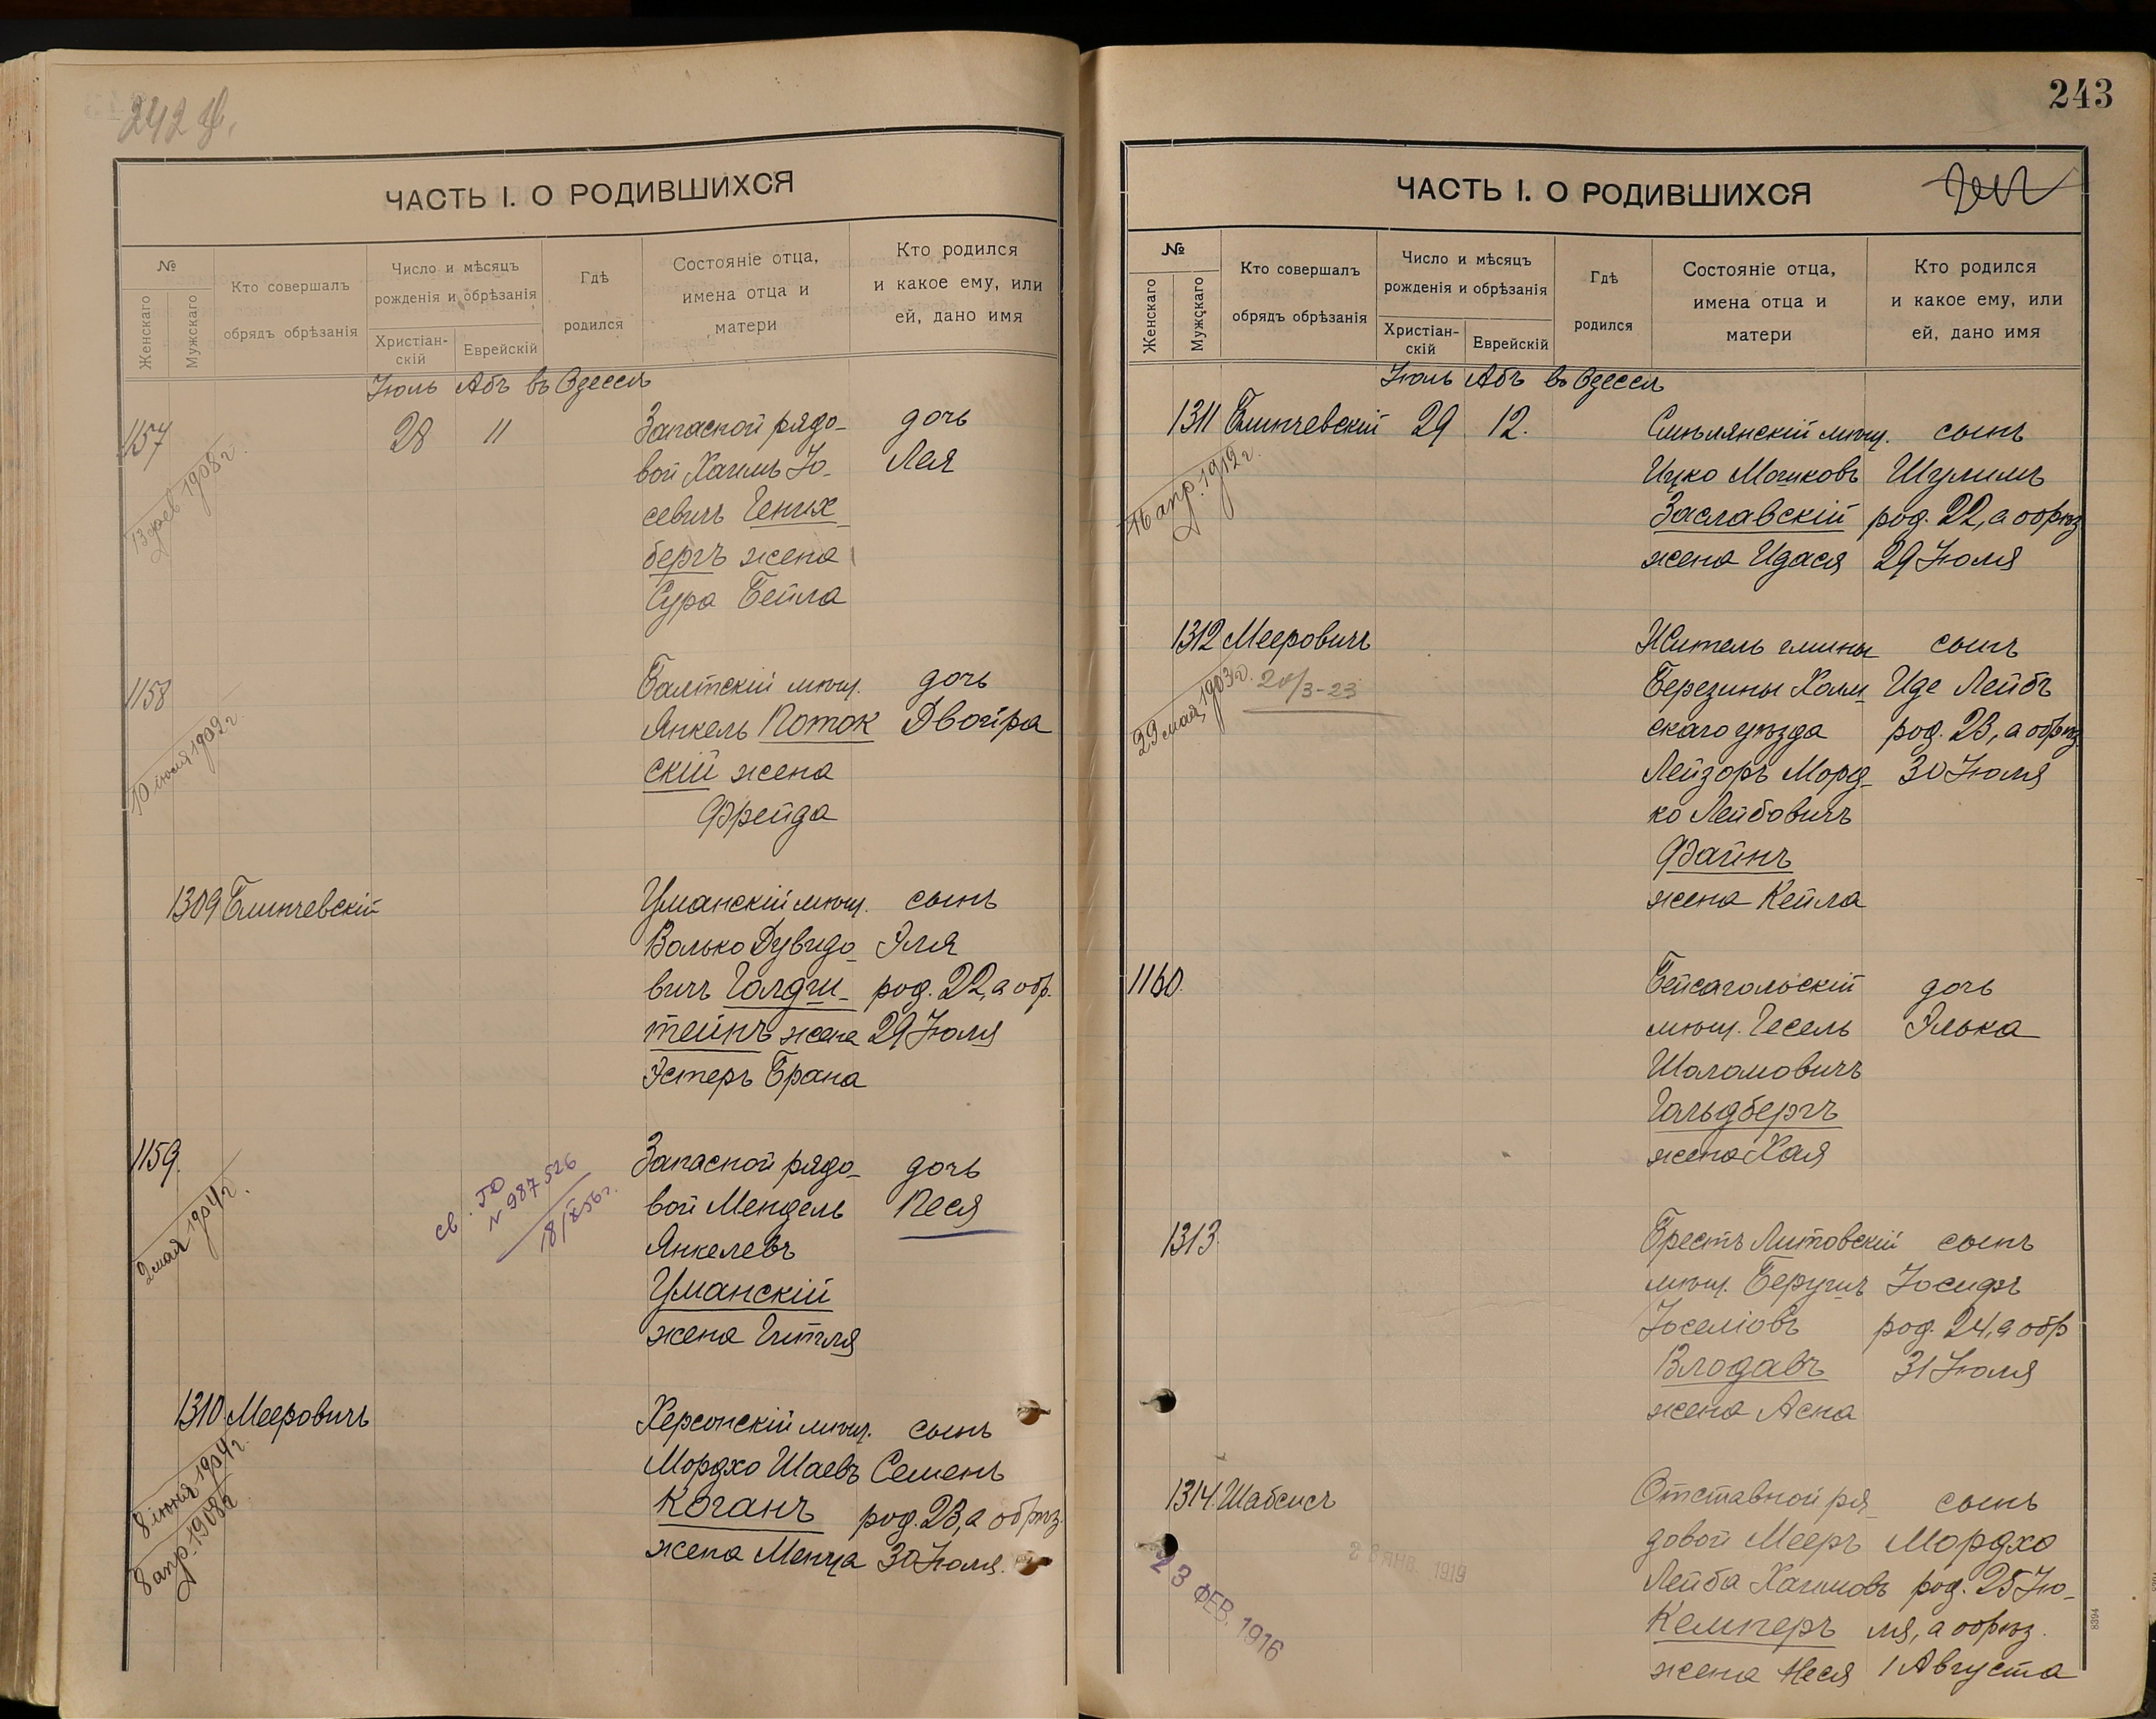 242
ЧАСТЬ I. О РОДИВШИХСЯ
№
Женскаго
Мужскаго
Кто совершалъ
обрядъ обрѣзанія
Число и мѣсяцъ
рожденія и обрѣзанія
Христіан-
скій
Еврейскій
Гдѣ
родился
Состояніе отца,
имена отца и
матери
Кто родился
и какое ему, или
ей, дано имя
Іюль Абъ въ Одессѣ
1157 28 11 Запасной рядо- дочь
вой Хаимъ Іо- Лея
севичъ Гених-
бергъ жена
Сура Бейла
13 фев. 1908 г.
1158 Балтскій мѣщ. дочь
Янкель Поток Двойра
скій жена
Фрейда
10 іюля 1902 г.
1309 Блинчевскій Уманскій мѣщ. сынъ
Волько Дувидо- Эля
вичъ Голдш- род. 22, а обр.
тейнъ жена 29 Іюля
Эстеръ Брана
1159. Запасной рядо- дочь
вой Мендель Песя
Янкелевъ
Уманскій
жена Гитля
2 мая 1904 г.
св. ГЮ
N 987526
18/X 56 г.
1310 Мееровичъ Херсонскій мѣщ. сынъ
Мордхо Шаевъ Семенъ
Коганъ род. 23, а обрѣз.
жена Менца 30 Іюля.
8 іюня 1904 г.
8 апр. 1908 г.
243
ЧАСТЬ I. О РОДИВШИХСЯ
№
Женскаго
Мужскаго
Кто совершалъ
обрядъ обрѣзанія
Число и мѣсяцъ
рожденія и обрѣзанія
Христіан-
скій
Еврейскій
Гдѣ
родился
Состояніе отца,
имена отца и
матери
Кто родился
и какое ему, или
ей, дано имя
Іюль Абъ въ Одессѣ
1311 Блинчевскій 29 12. Смѣлянскій мѣщ. сынъ
Ицко Мошковъ Шулимъ
Заславскій род. 22, а обрѣз
жена Идася 29 Іюля
16 апр. 1912 г.
1312 Мееровичъ Житель гмины сынъ
Березины Холм Иде Лейбъ
скаго уѣзда род. 23, а обрѣз
Лейзоръ Морд- 30 Іюля
ко Лейбовичъ
Файнъ
жена Кейла
29 мая 1903 г.
20/3-23
1160. Бейсагольскій дочь
мѣщ. Гесель Элька
Шоломовичъ
Гольдбергъ
жена Хая
1313. Брестъ Литовскій сынъ
мѣщ. Беришъ Іосифъ
Іоселіовъ род. 24, а обр
Влодавъ 31 Іюля
жена Асна
1314. Шабсисъ Отставной ря- сынъ
довой Мееръ Мордхо
Лейба Хаимовъ род. 25 Ію-
Кемперъ ля, а обрѣз.
жена Неся 1 Августа
23 ФЕВ. 1916
ЯНВ. 1919
8394